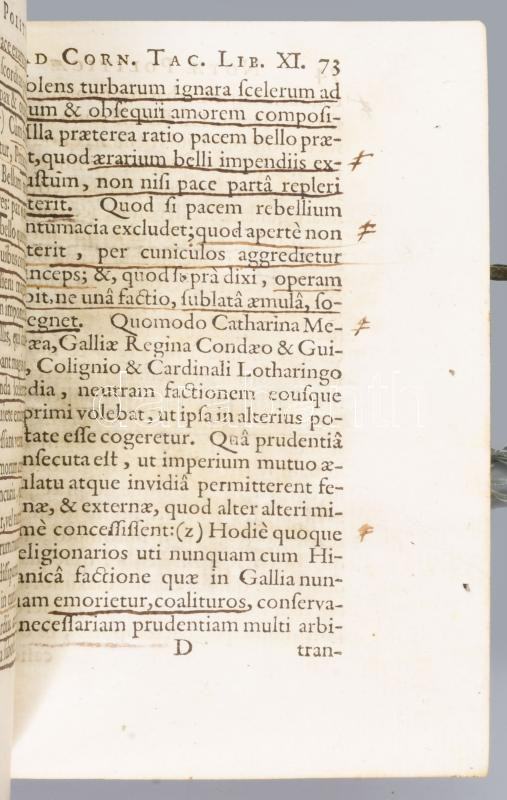 AD CORN. TAC. LIB. XI. 73
olens turbarum ignara scelerum ad
um & obsequii amorem composi-
Illa præterea ratio pacem bello præ-
t, quod ærarium belli impendiis ex-
ustum, non nisi pace partâ repleri
terit. Quod si pacem rebellium
ntumacia excludet; quod apertè non
terit, per cuniculos aggredietur
inceps; &, quod suprà dixi, operam
bit, ne unâ factio, sublatâ æmulâ, so-
egnet. Quomodo Catharina Me-
æa, Galliæ Regina Condæo & Gui-
, Colignio & Cardinali Lotharingo
dia, neutram factionem eousque
primi volebat, ut ipsa in alterius po-
tate esse cogeretur. Quâ prudentiâ
nsecuta est, ut imperium mutuo æ-
ulatu atque invidiâ permitterent fe-
næ, & externæ, quod alter alteri mi-
mè concessissent: (z) Hodiè quoque
eligionarios uti nunquam cum Hi-
anicâ factione quæ in Gallia nun-
am emorietur, coalituros, conserva-
necessariam prudentiam multi arbi-
D tran-